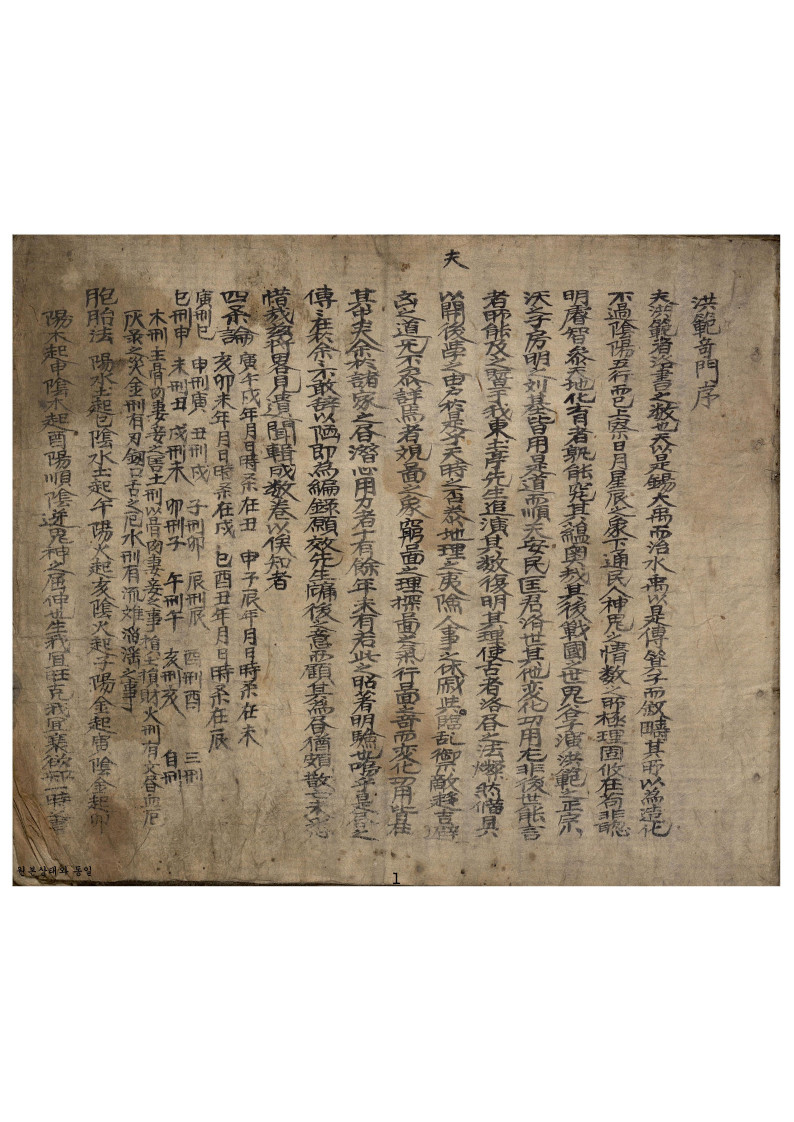 夫
洪範奇門序
夫洪範者洛書之數也天以是錫大禹而治水禹以是傳箕子而敍疇其所以爲造化
不過陰陽五行而已上察日月星辰之象下通民人神鬼之情數之所極理固攸在苟非聰
明睿智參天地化育者孰能究其蘊奧哉其後戰國之世鬼谷子演洪範之正宗
漢之子房明之劉基皆用是道而順天安民匡君治世其他変化功用尤非後世能言
者所能及之曁于我東土亭先生追演其數復明其理使古者洛書之法燦然備具
以開後學之由於是乎天時之否泰地理之夷險人事之休戚共臨乱禦敵趍吉避
凶之道旡不參詳焉者觀圖之象窮圖之理探圖之氣行圖之奇而変化功用皆在
其中夫余於諸家之書潛心用力者十有餘年未有若此之昭著明驗也嗚乎是書之
傳之在於余余不敢辭以陋即爲編錄願效先生牖後之意而顧其爲書猶頗散亡未
惜哉玆將畧見遺聞輯成數卷以俟知者
四柔論 寅午戌年月日時柔在丑 申子辰年月日時柔在未
亥卯未年月日時柔在戌 巳酉丑年月日時柔在辰
寅刑巳 申刑寅 丑刑戌 子刑卯 辰刑辰 酉刑酉 三刑
巳刑申 未刑丑 戌刑未 卯刑子 午刑午 亥刑亥 自刑
木刑主骨肉妻妾之害土刑以骨肉妻妾之事損失損財火刑有文書血厄
灰柔之災金刑有刃劍口舌之厄水刑有流難淫之事
胞胎法 陽水土起巳陰水土起午陽火起亥陰火起子陽金起寅陰金起卯
陽木起申陰木起酉陽順陰逆鬼神之屈伸也生我宜旺克我宜
원본상태와 동일
1